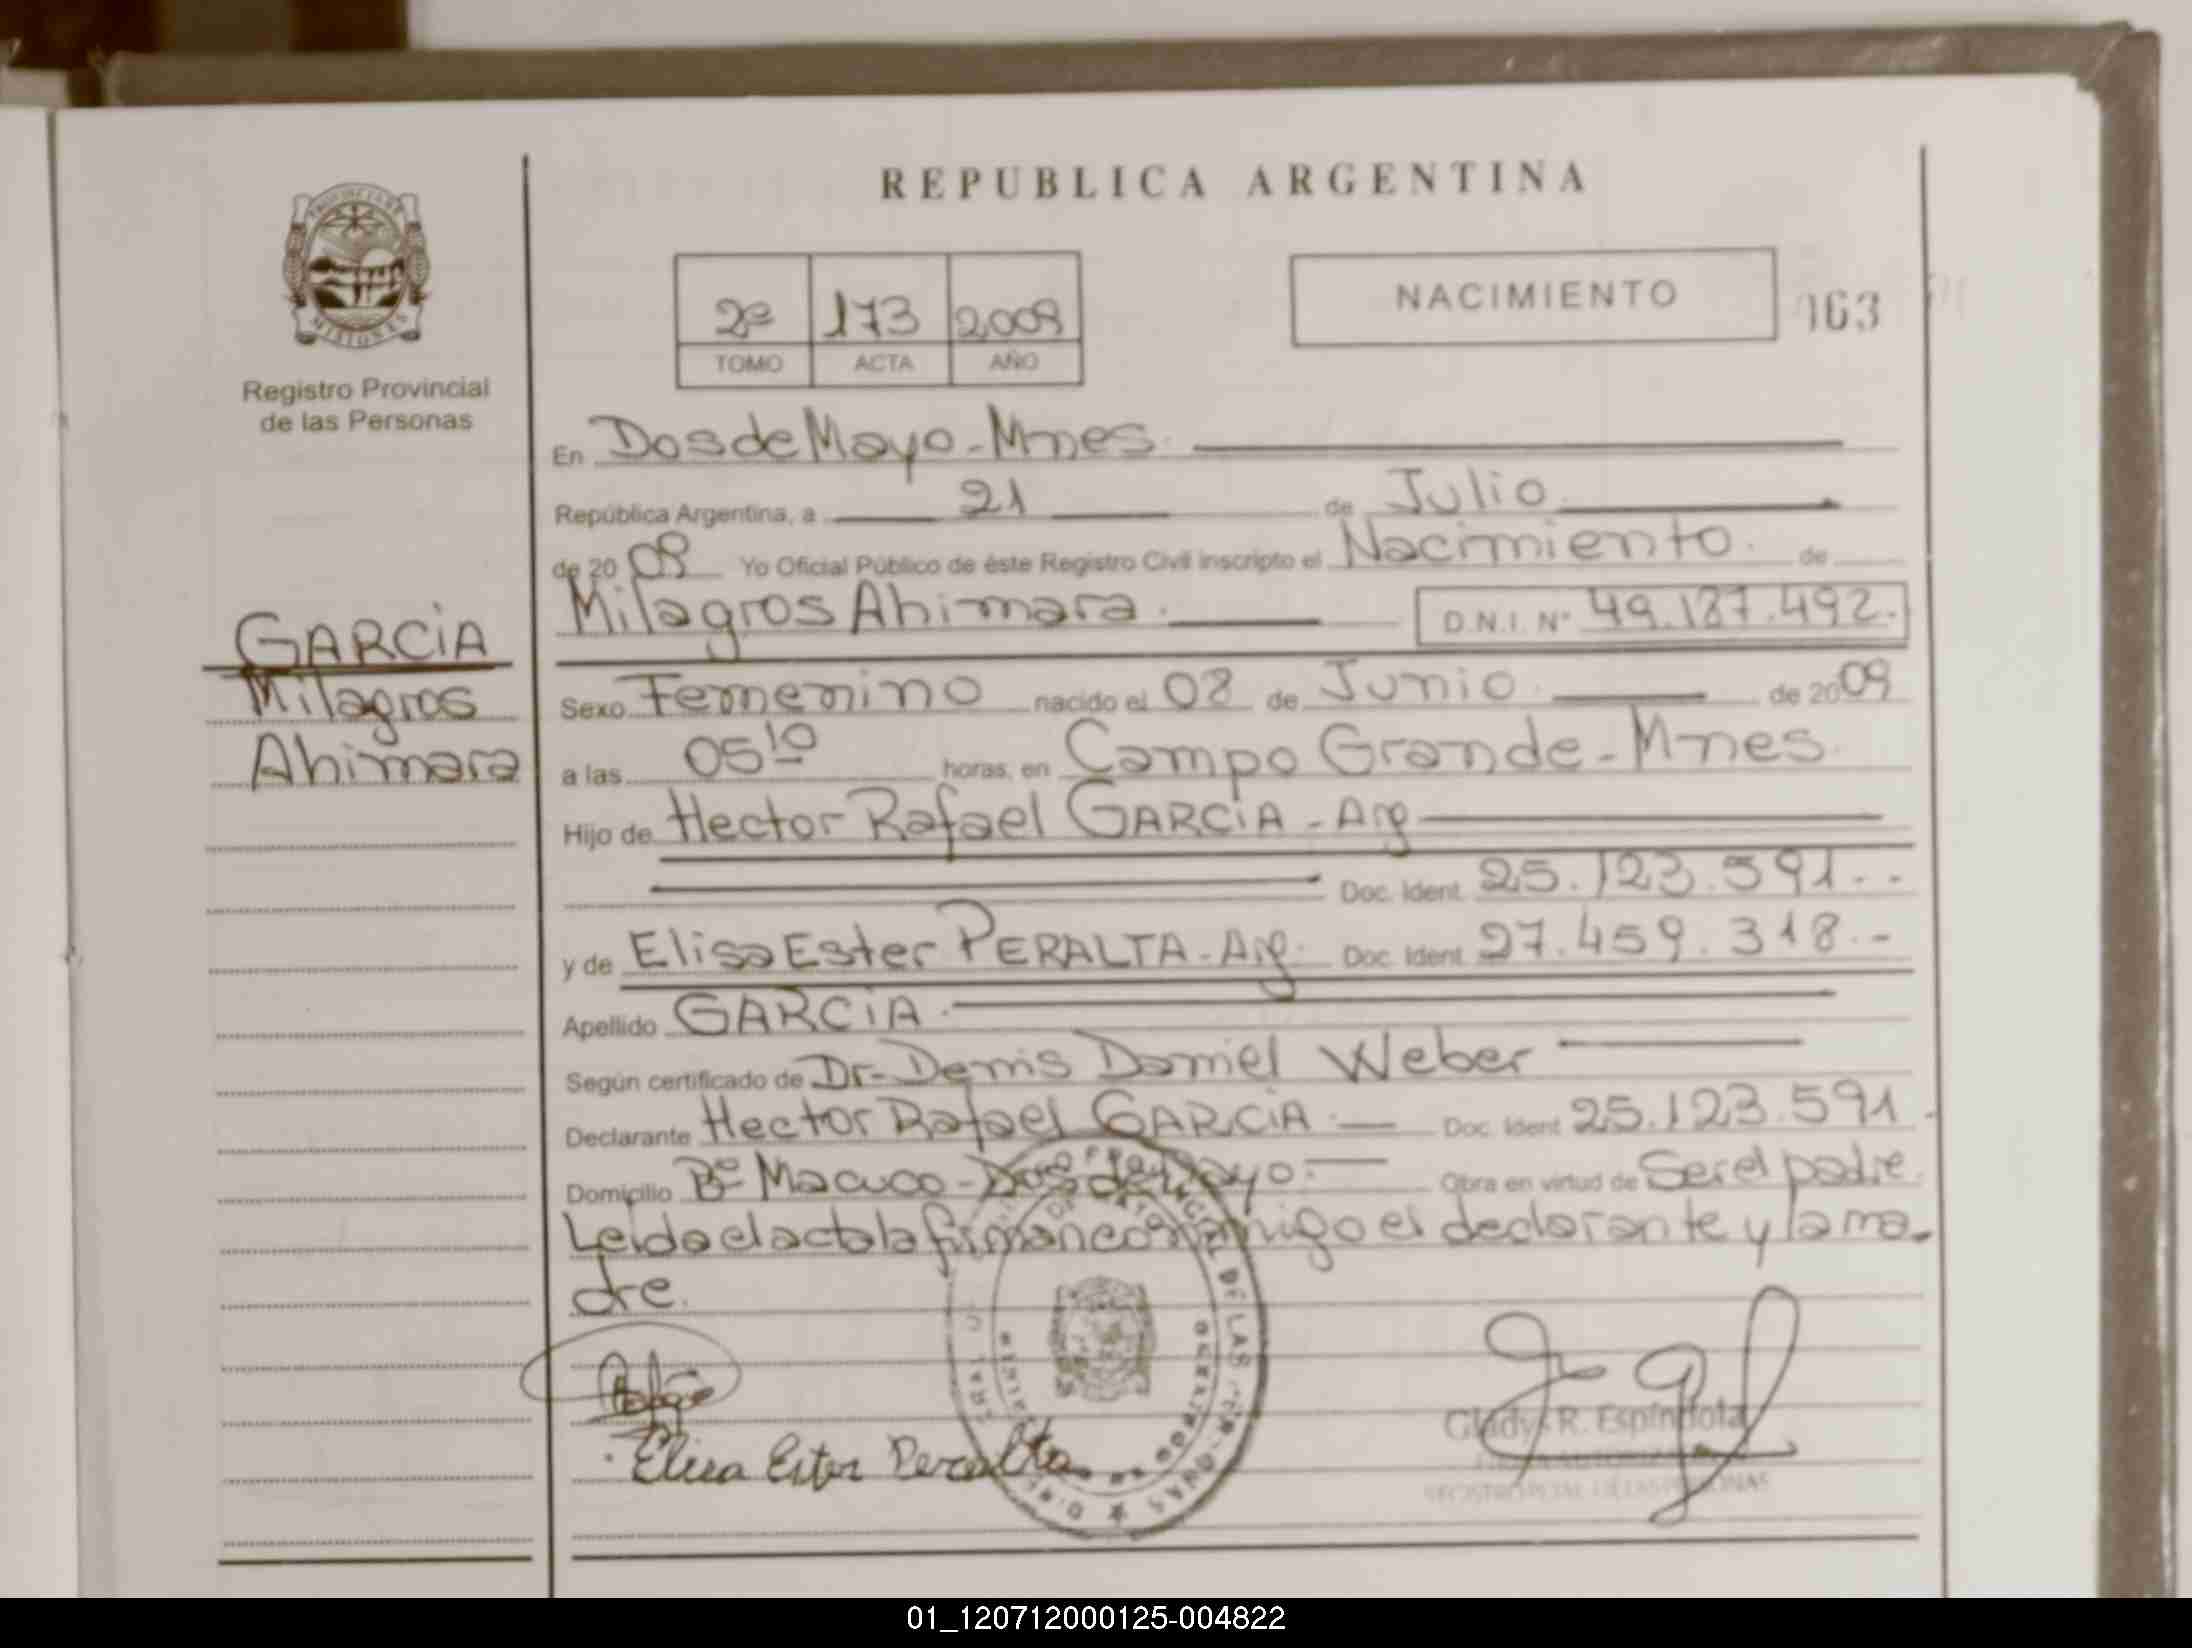 REPUBLICA ARGENTINA
PROVINCIA DE MISIONES
Registro Provincial
de las Personas
2º 173 2009
TOMO ACTA AÑO
NACIMIENTO
163
En Dos de Mayo - Mnes.
República Argentina, a 21 de Julio
de 2009 Yo Oficial Público de éste Registro Civil inscripto el Nacimiento. de
Milagros Ahimara. D.N.I. Nº 49.187.492.-
GARCIA
Milagros
Ahimara
Sexo Femenino nacido el 08 de Junio. de 2009
a las 05 10 horas, en Campo Grande - Mnes.
Hijo de Hector Rafael GARCIA - Arg
Doc. Ident. 25.123.591.-
y de Elisa Ester PERALTA - Arg. Doc. Ident. 27.459.318.-
Apellido GARCIA.
Según certificado de Dr- Denis Daniel Weber
Declarante Hector Rafael GARCIA. Doc. Ident. 25.123.591.
Domicilio Bº Macuco - Dos de Mayo. Obra en virtud de Ser el padre.
Leida el acta la firman conmigo el declarante y la ma-
dre.
Elisa Ester Peralta
Gladys R. Espíndola
REGISTRO PCIAL. DE LAS PERSONAS
01_120712000125-004822